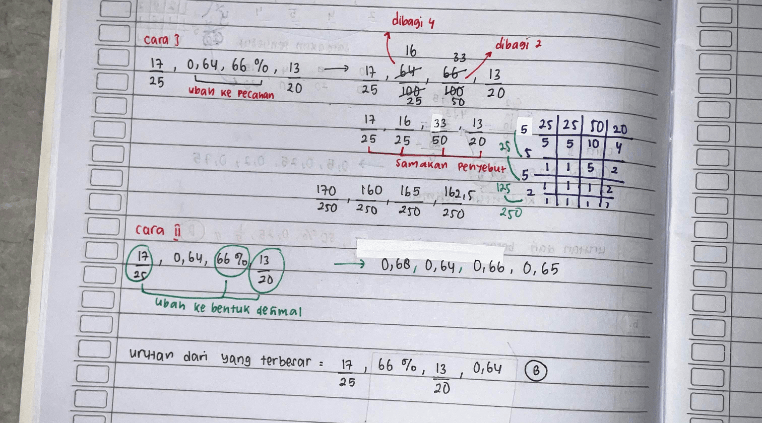 dibagi 4
cara I
16 33 dibagi 2
17/25, 0,64, 66 %, 13/20 → 17/25, 64/100, 66/100, 13/20
25 50
ubah ke pecahan
17/25, 16/25, 33/50, 13/20
samakan penyebut
5 | 25 | 25 | 50 | 20
5 | 5 | 5 | 10 | 4
5 | 1 | 1 | 5 | 2
2 | 1 | 1 | 1 | 2
1 | 1 | 1 | 1
25
125
250
170/250, 160/250, 165/250, 162,5/250
cara ii
17/25, 0,64, 66 %, 13/20 → 0,68, 0,64, 0,66, 0,65
ubah ke bentuk desimal
urutan dari yang terbesar = 17/25, 66 %, 13/20, 0,64 B